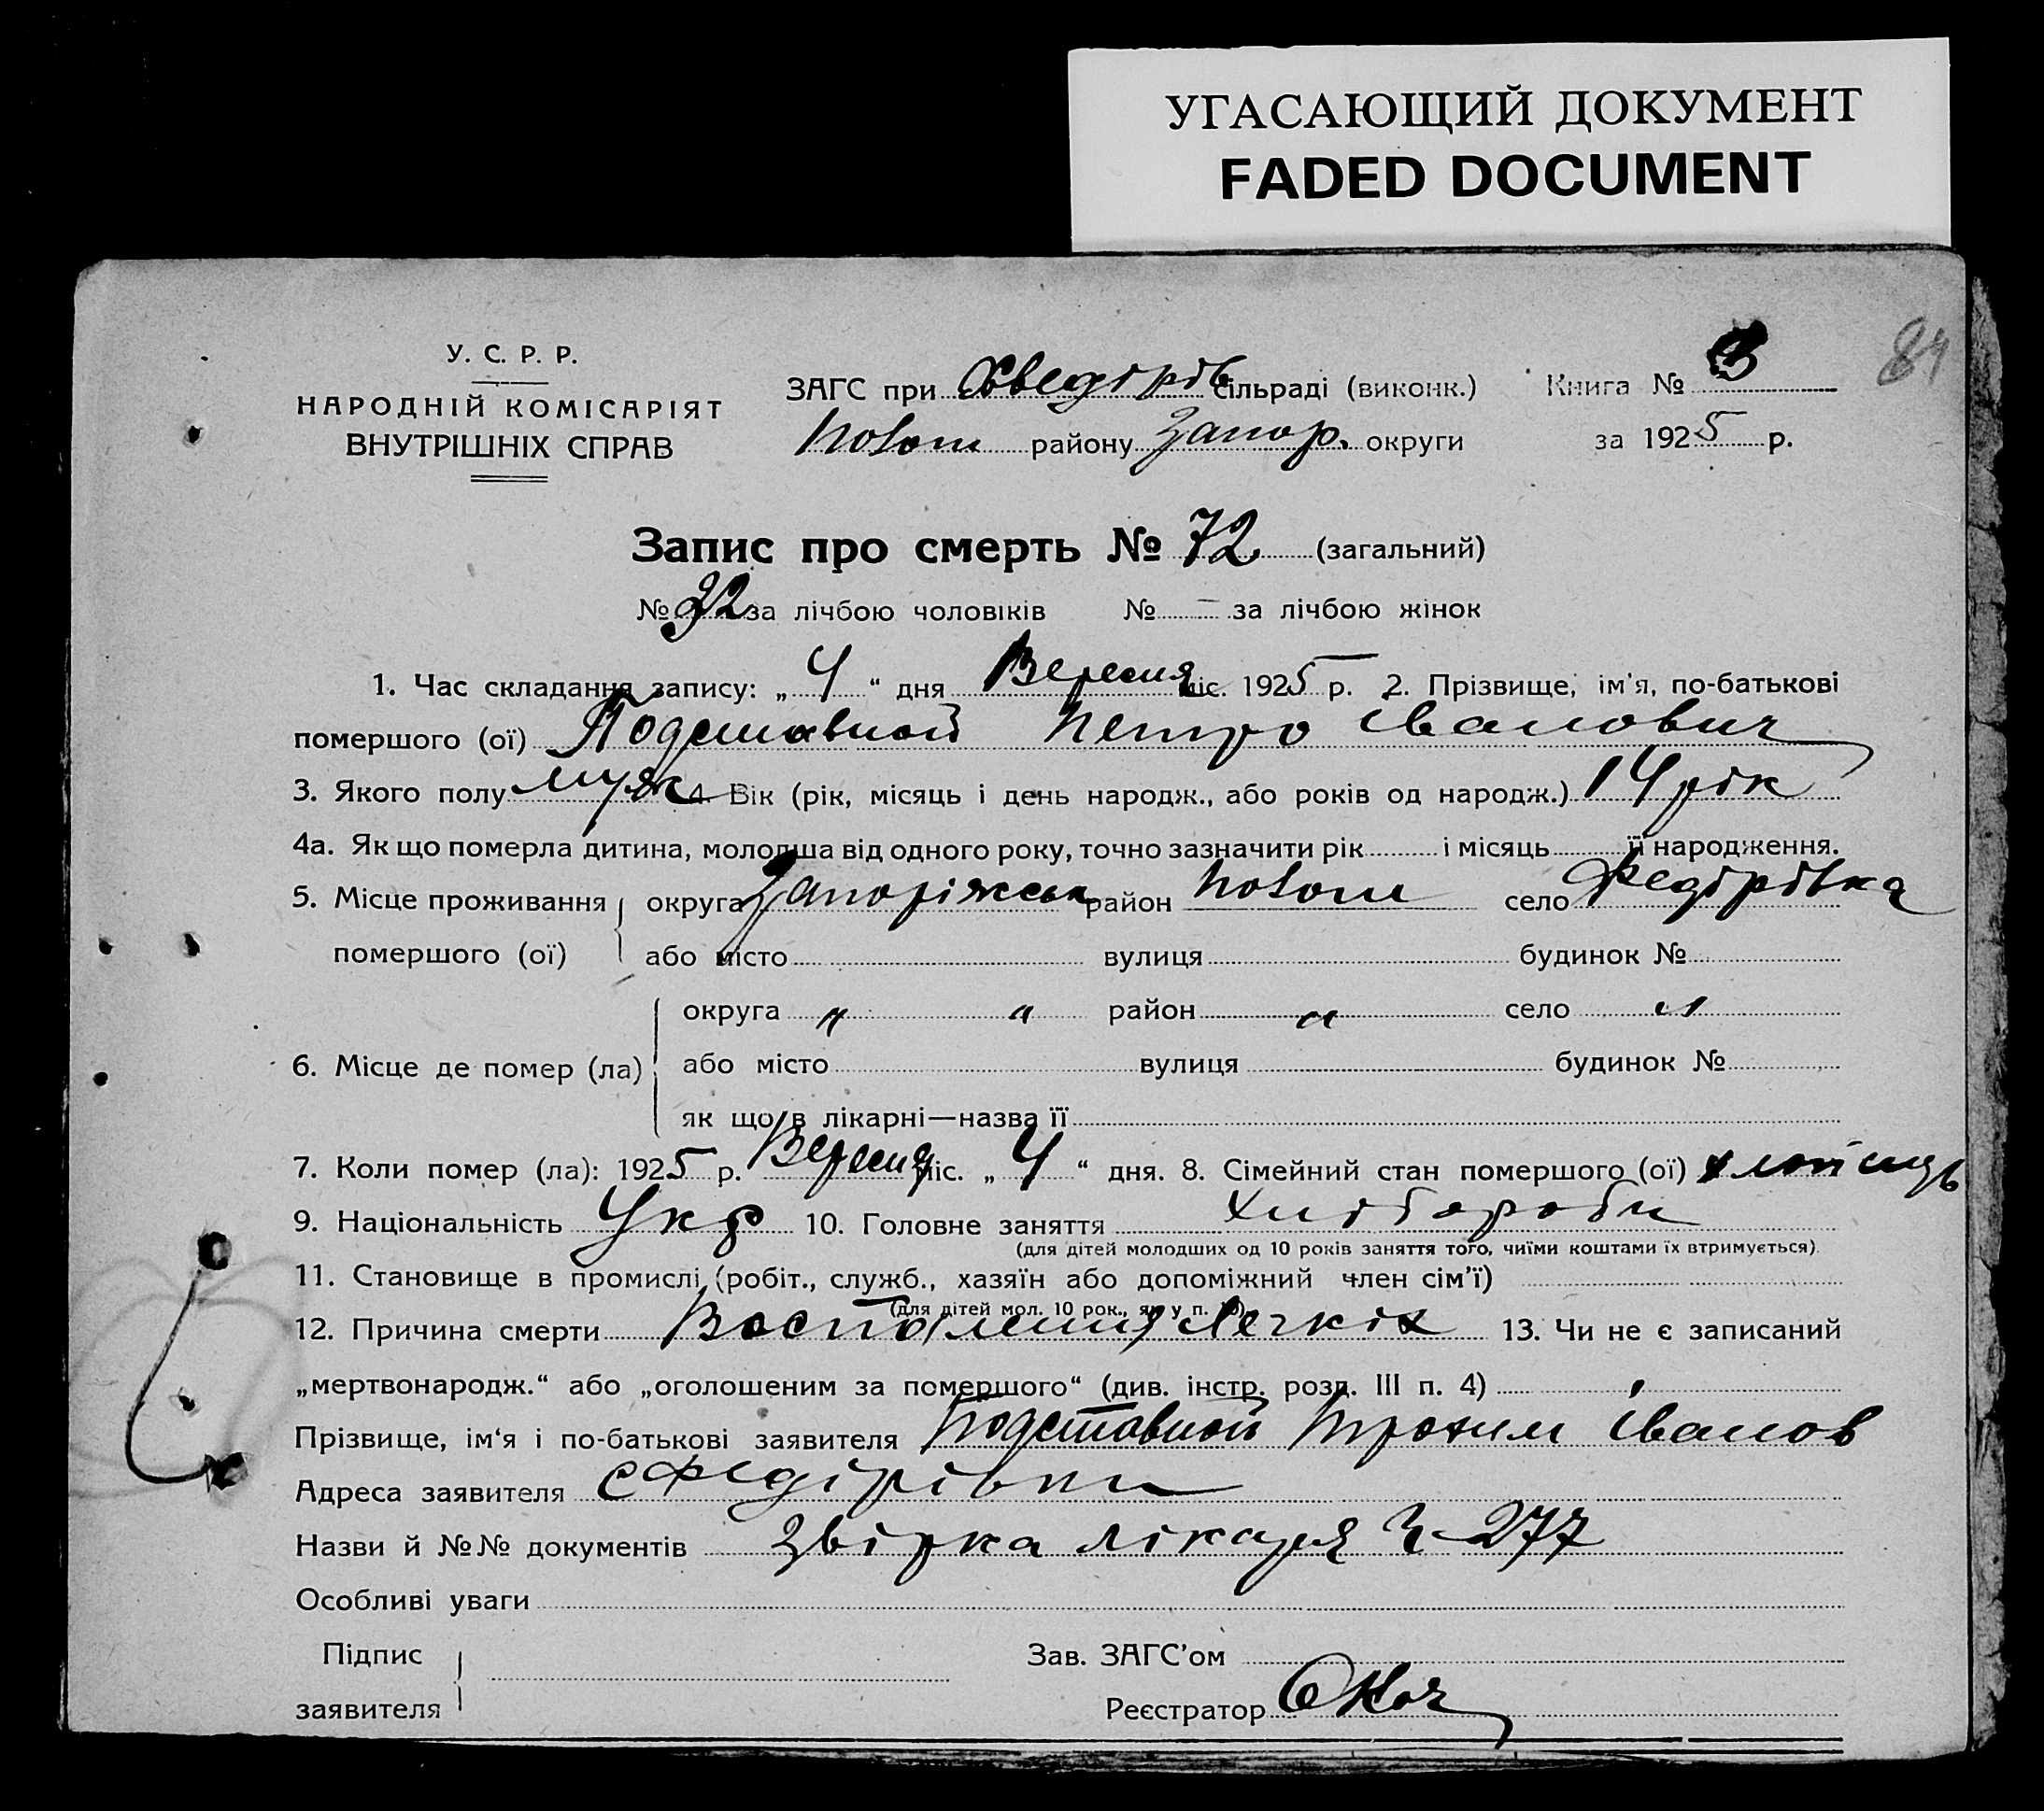 УГАСАЮЩИЙ ДОКУМЕНТ
FADED DOCUMENT
84
У. С. Р. Р.
НАРОДНІЙ КОМІСАРІЯТ
ВНУТРІШНІХ СПРАВ
ЗАГС при Хведірів сільраді (виконк.) Книга №
району Запор. округи за 1925 р.
Запис про смерть № 72 (загальний)
№ 32 за лічбою чоловіків № – за лічбою жінок
1. Час складання запису: „4“ дня Вересня міс. 1925 р. 2. Прізвище, ім'я, по-батькові
помершого (ої) Подставной Петро Іванович
3. Якого полу муж 4. Вік (рік, місяць і день народж., або років од народж.) 14 рік
4а. Як що померла дитина, молодша від одного року, точно зазначити рік і місяць її народження.
5. Місце проживання округа Запоріжськ район село Федірівка
помершого (ої) або місто вулиця будинок №
округа „ „ район „ село „
6. Місце де помер (ла) або місто вулиця будинок №
як що в лікарні—назва її
7. Коли помер (ла): 1925 р. Вересня міс. „4“ дня. 8. Сімейний стан помершого (ої) хлопець
9. Національність Укр 10. Головне заняття хлібороби
(для дітей молодших од 10 років заняття того, чиїми коштами їх втримується).
11. Становище в промислі (робіт., служб., хазяїн або допоміжний член сім'ї)
(для дітей мол. 10 рок., як у п. 10)
12. Причина смерти Воспаления Легких 13. Чи не є записаний
„мертвонародж.“ або „оголошеним за помершого“ (див. інстр. розд. III п. 4)
Прізвище, ім‘я і по-батькові заявителя Подставной Трохим Іванов
Адреса заявителя с Федірівки
Назви й №№ документів Звірка лікаря Ч-277
Особливі уваги
Підпис Зав. ЗАГС'ом
заявителя Реєстратор